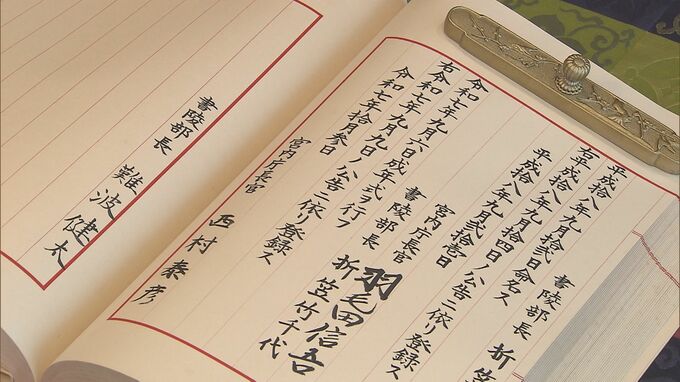 書陵部長 折
平成拾八年九月拾弐日命名ス
右平成拾八年九月拾四日ノ公告ニ依リ登録ス
平成拾八年九月弐拾壱日
宮内庁長官 羽毛田信吾
書陵部長 折笠竹千代
令和七年九月六日成年式ヲ行フ
右令和七年九月九日ノ公告ニ依リ登録ス
令和七年拾月参日
宮内庁長官 西村泰彦
書陵部長 難波健太